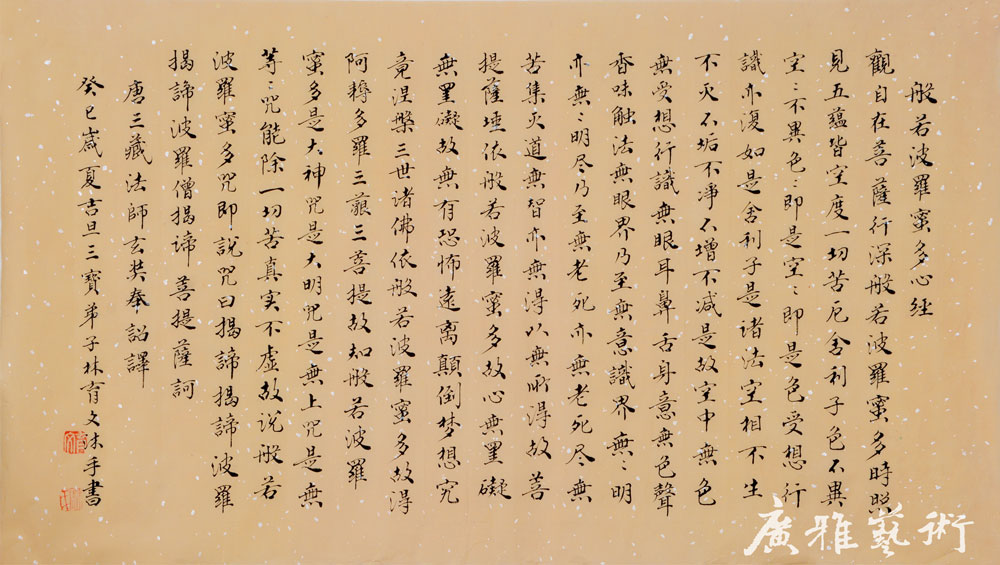 般若波羅蜜多心经
觀自在菩薩行深般若波羅蜜多時照
見五蘊皆空度一切苦厄舍利子色不異
空〻不異色〻即是空〻即是色受想行
識亦復如是舍利子是诸法空相不生
不灭不垢不淨不增不减是故空中無色
無受想行識無眼耳鼻舌身意無色聲
香味触法無眼界乃至無意識界無〻明
亦無〻明尽乃至無老死亦無老死尽無
苦集灭道無智亦無得以無所得故菩
提薩埵依般若波羅蜜多故心無罣礙
無罣礙故無有恐怖遠离顛倒梦想究
竟涅槃三世诸佛依般若波羅蜜多故得
阿耨多羅三藐三菩提故知般若波羅
蜜多是大神咒是大明咒是無上咒是無
等〻咒能除一切苦真实不虚故说般若
波羅蜜多咒即說咒曰揭諦揭諦波羅
揭諦波羅僧揭諦菩提薩訶
唐三藏法師玄奘奉詔譯
癸巳歲夏吉旦三寶弟子林育文沐手書
廣雅藝術